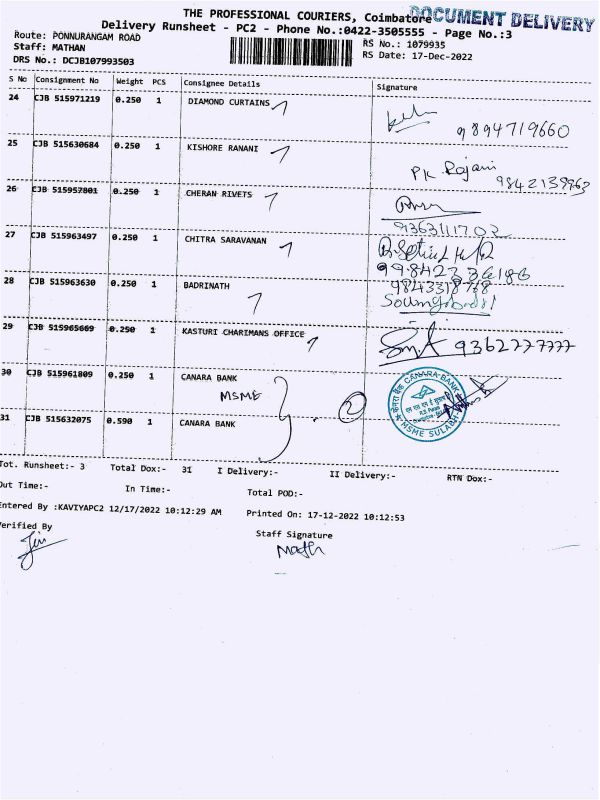 THE PROFESSIONAL COURIERS, Coimbatore DOCUMENT DELIVERY
Delivery Runsheet - PC2 - Phone No.:0422-3505555 - Page No.:3
Route: PONNURANGAM ROAD RS No.: 1079935
Staff: MATHAN RS Date: 17-Dec-2022
DRS No.: DCJB107993503
S No Consignment No Weight PCS Consignee Details Signature
24 CJB 515971219 0.250 1 DIAMOND CURTAINS
9894719660
25 CJB 515630684 0.250 1 KISHORE RANANI
PK Rajani
9842139963
26 CJB 515957801 0.250 1 CHERAN RIVETS
9363111702
27 CJB 515963497 0.250 1 CHITRA SARAVANAN
28 CJB 515963630 0.250 1 BADRINATH
9843318768
29 CJB 515965669 0.250 1 KASTURI CHARIMANS OFFICE
9362777777
30 CJB 515961809 0.250 1 CANARA BANK
MSME 2
CANARA BANK
MSME SULABH
31 CJB 515632075 0.590 1 CANARA BANK
Tot. Runsheet:- 3 Total Dox:- 31 I Delivery:- II Delivery:- RTN Dox:-
Out Time:- In Time:- Total POD:-
Entered By :KAVIYAPC2 12/17/2022 10:12:29 AM Printed On: 17-12-2022 10:12:53
Verified By Staff Signature
Math